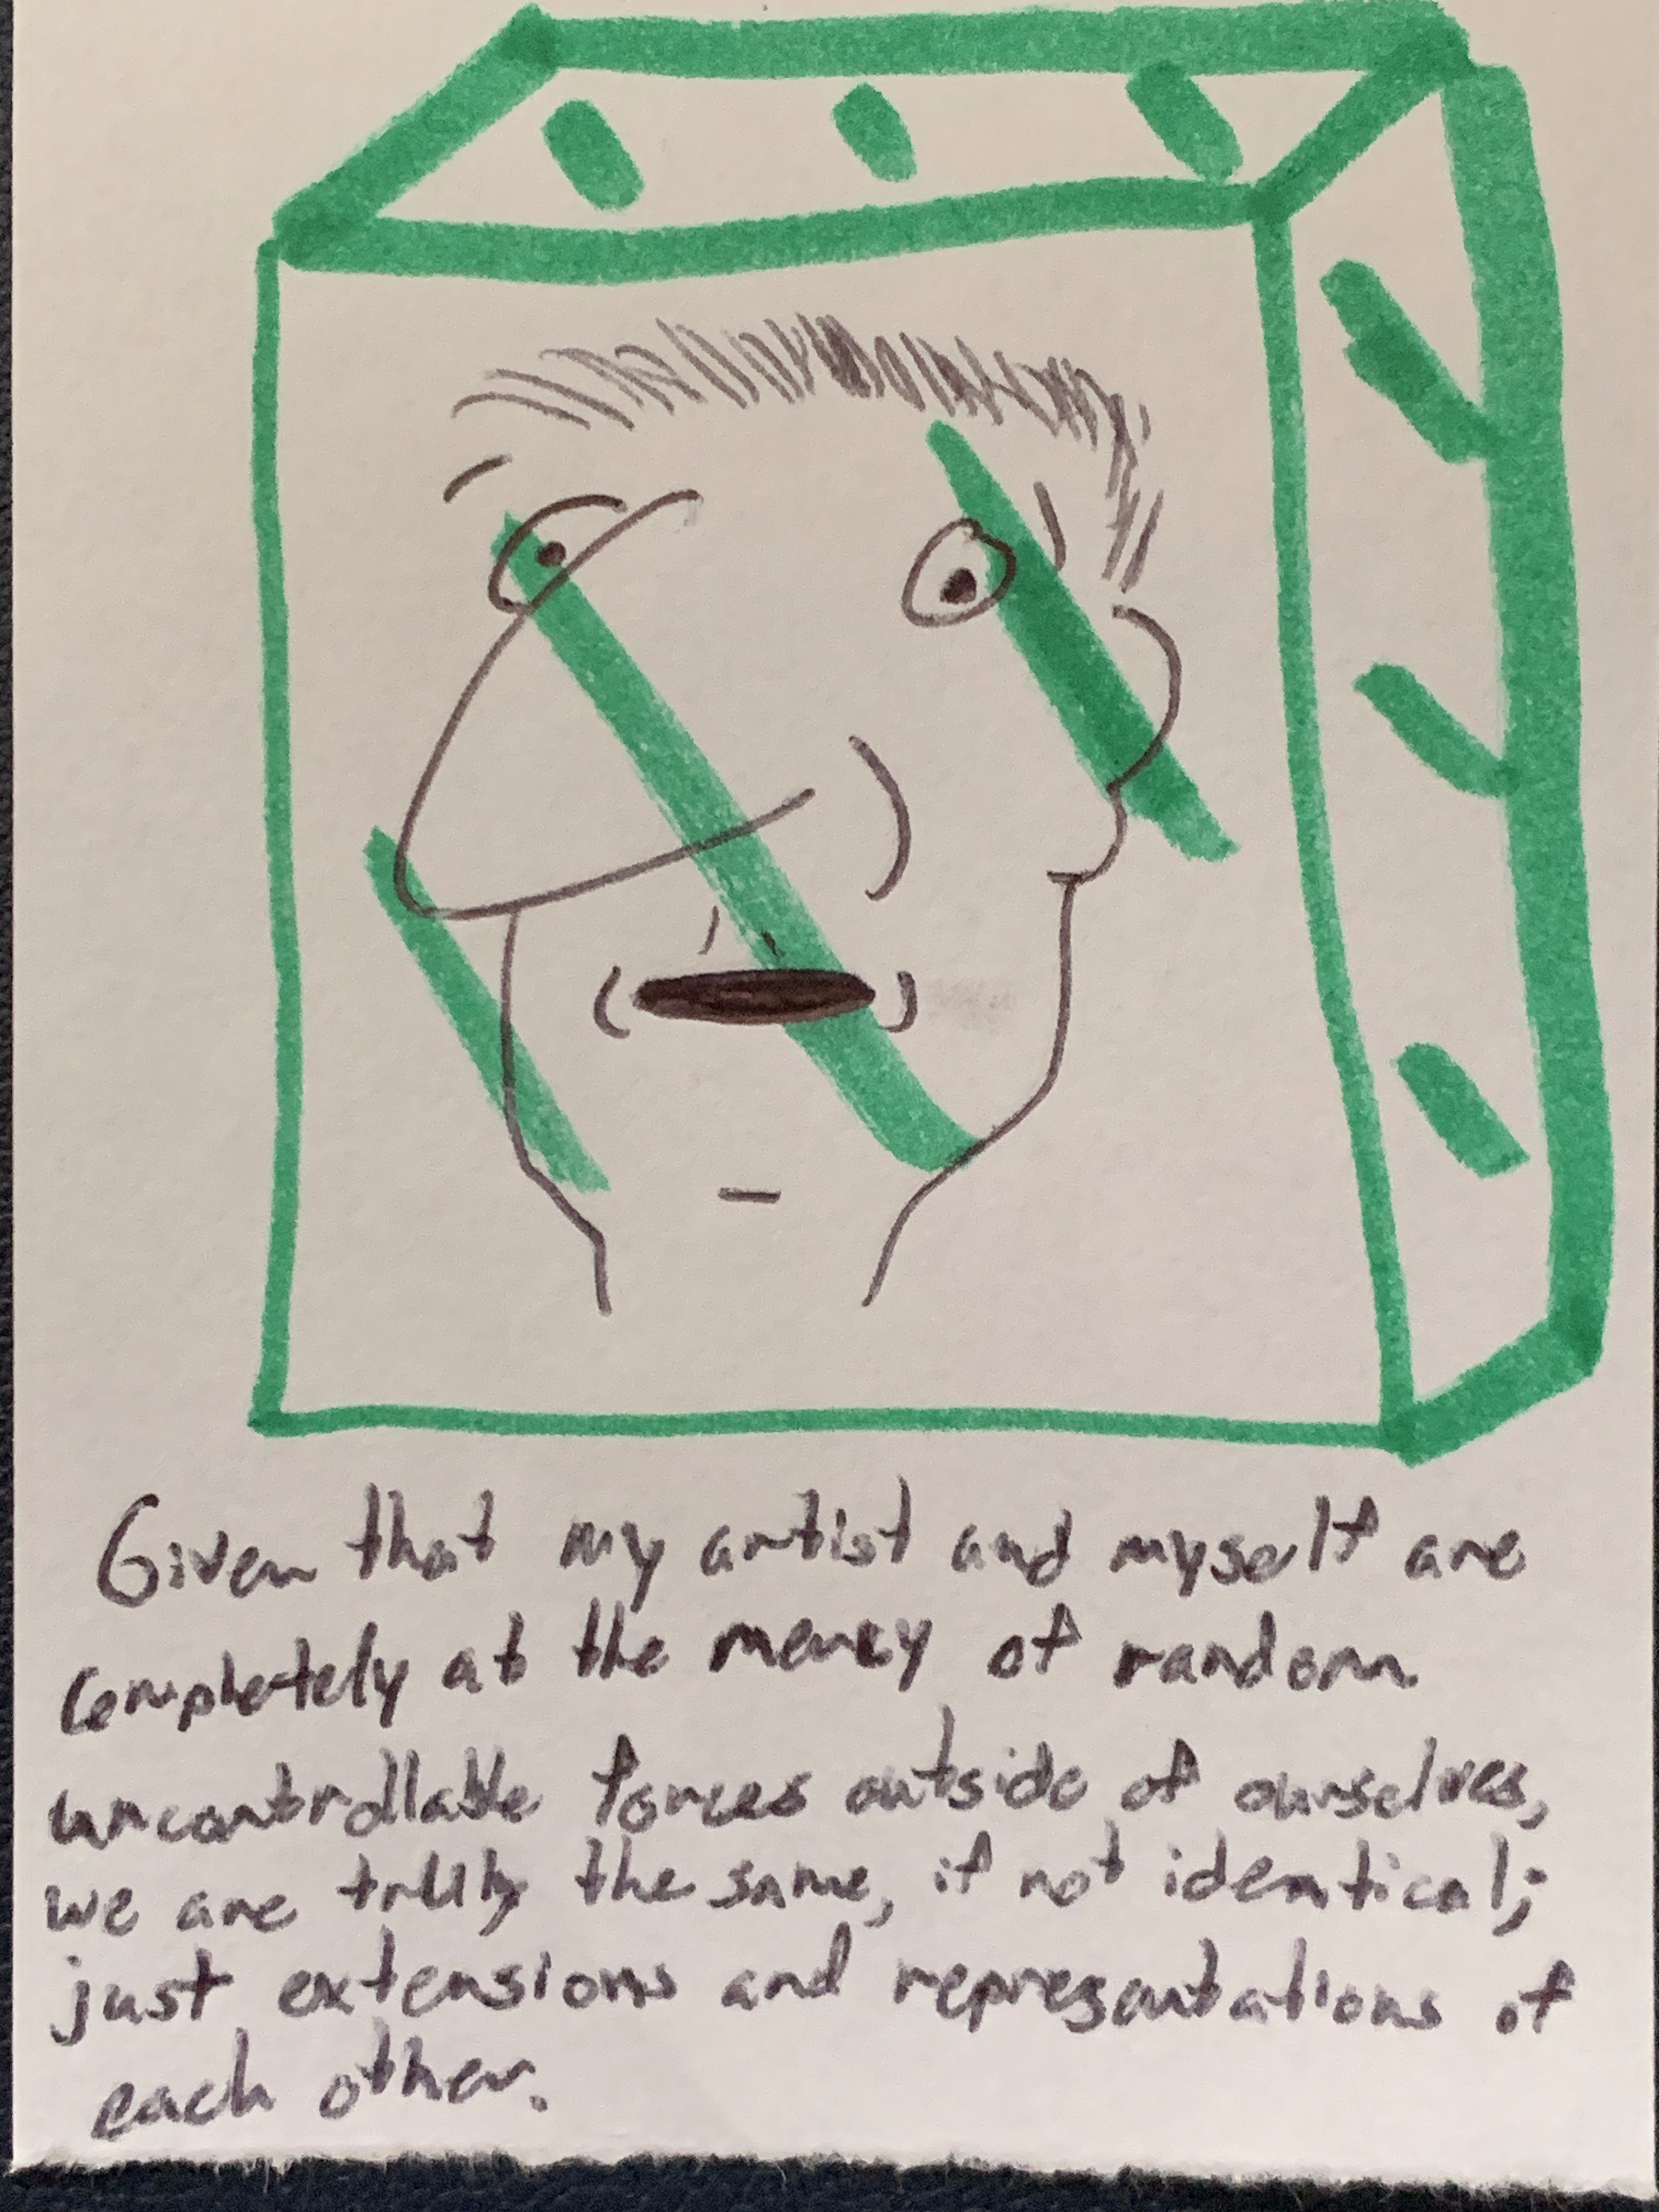 Given that my artist and myself are
completely at the mercy of random
uncontrollable forces outside of ourselves,
we are truly the same, if not identical;
just extensions and representations of
each other.